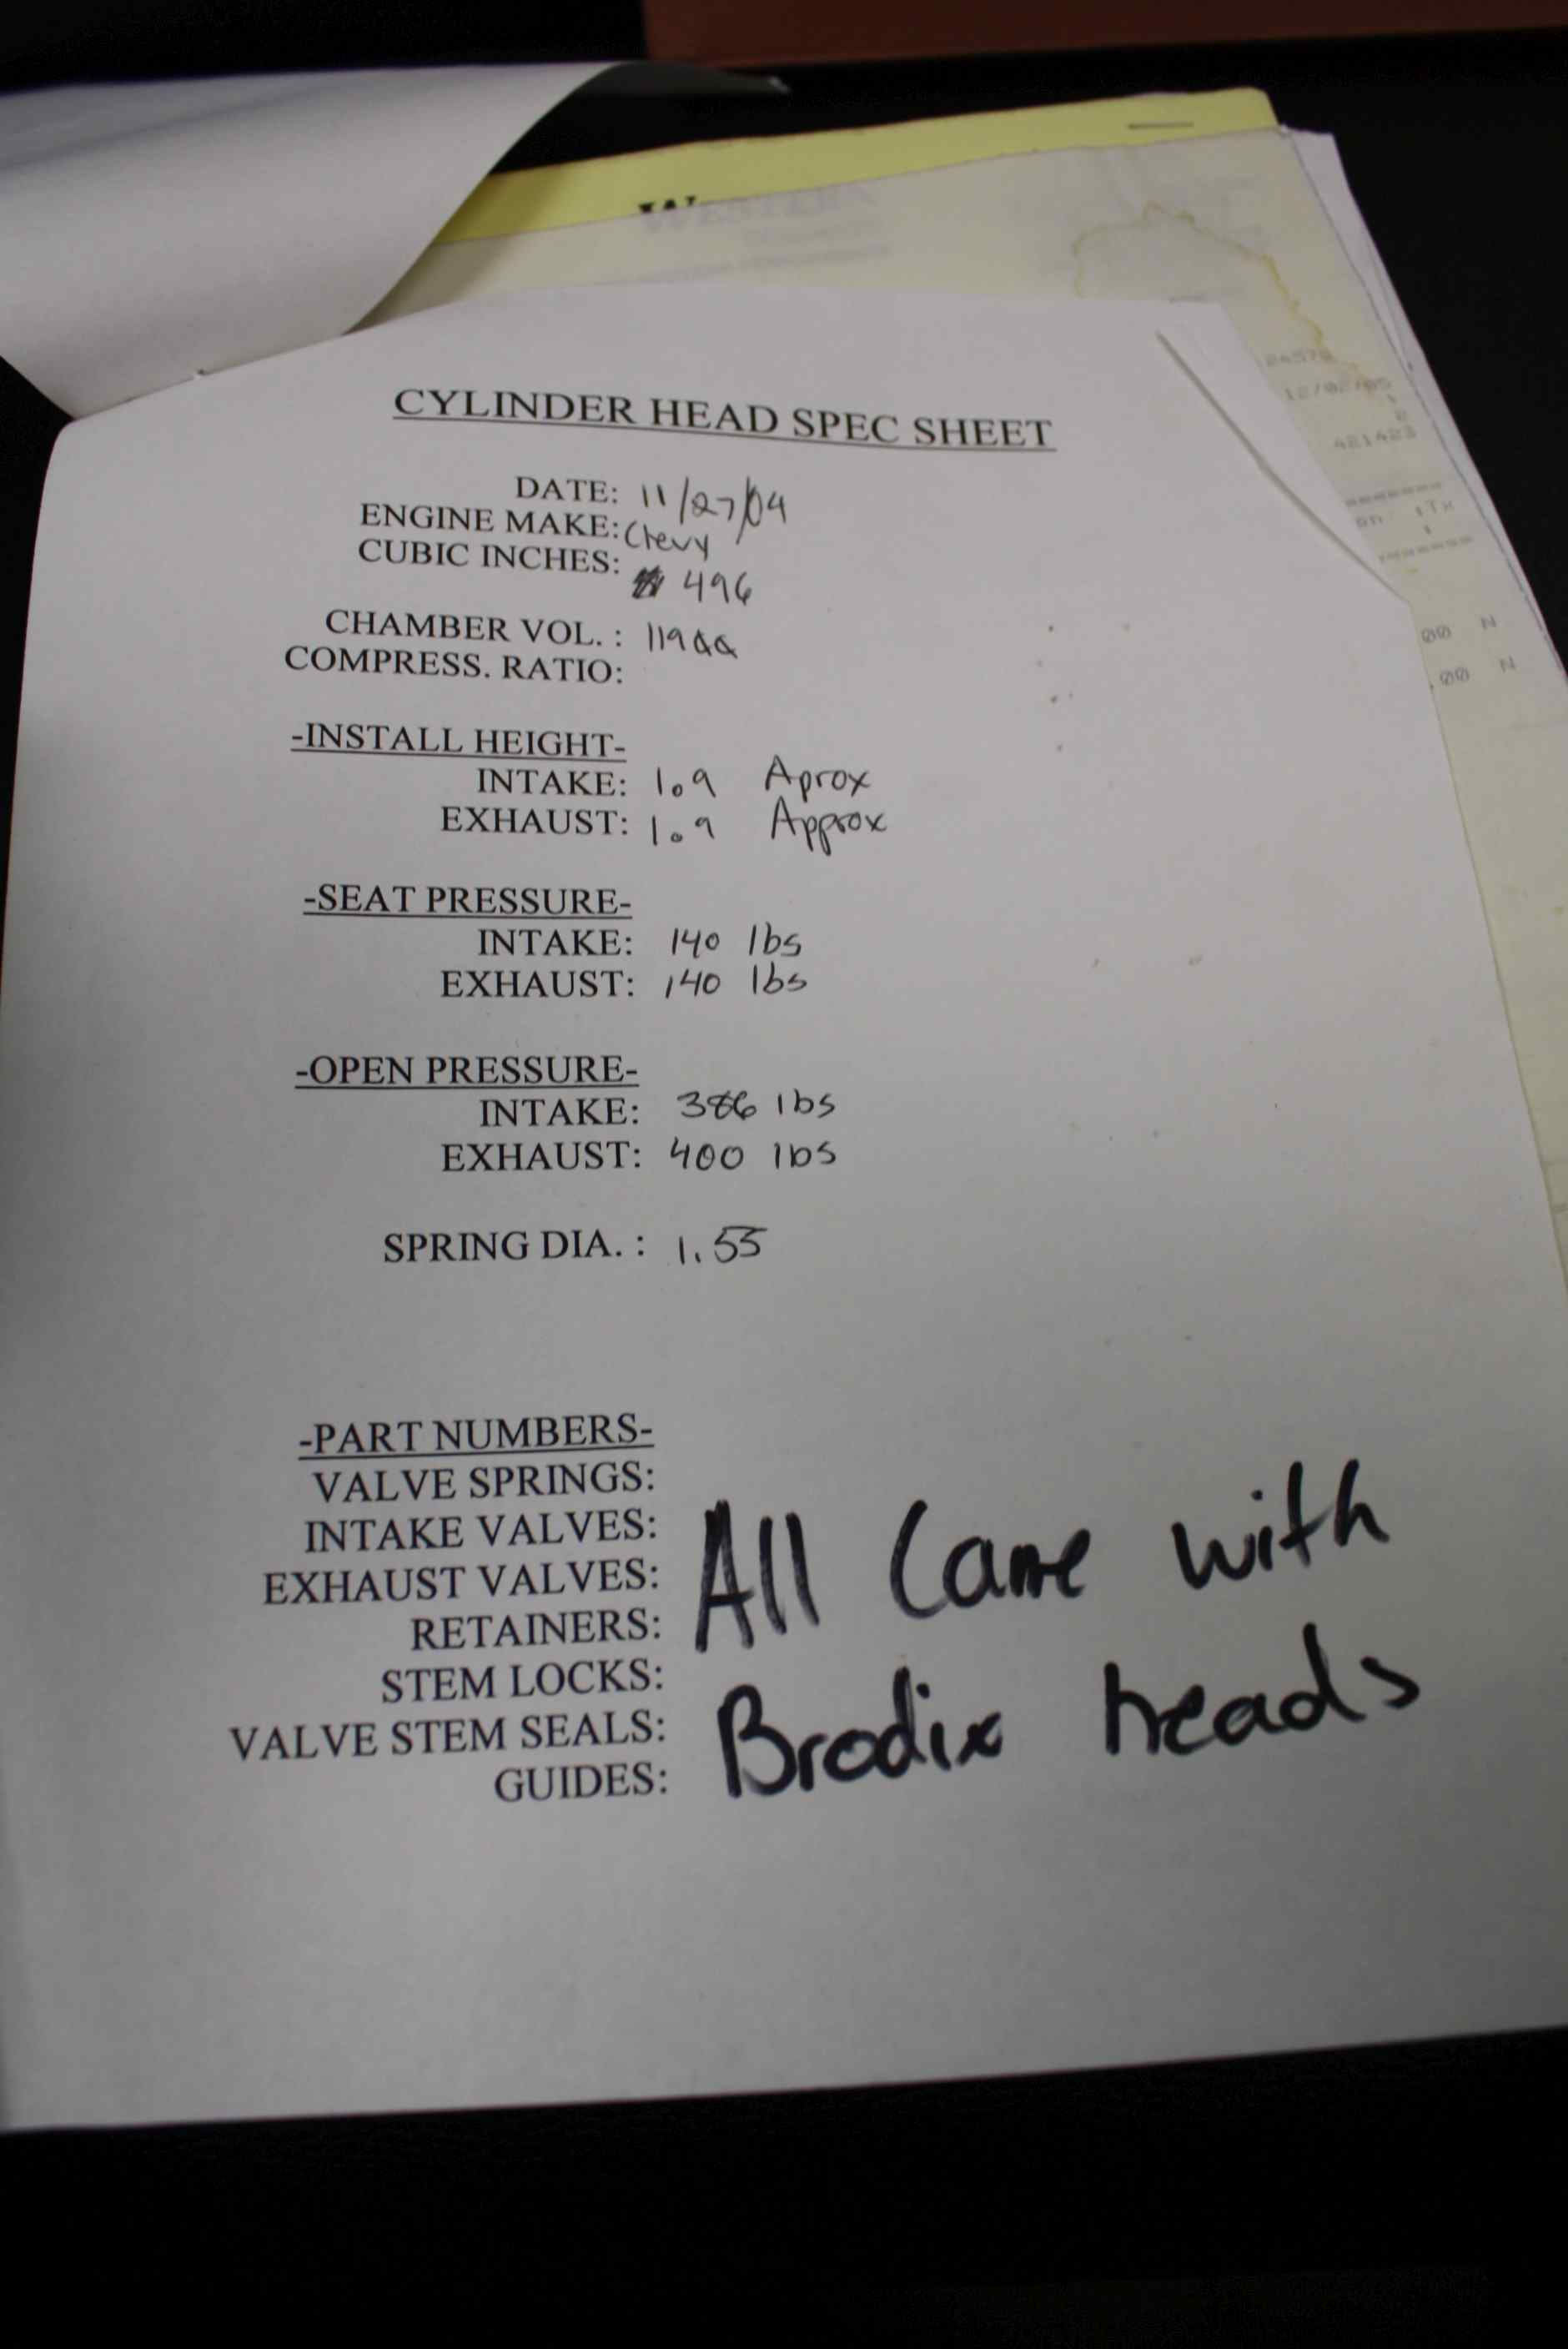 WESTERN
CYLINDER HEAD SPEC SHEET
DATE: 11/27/04
ENGINE MAKE: Chevy
CUBIC INCHES: 496
CHAMBER VOL. : 119
COMPRESS. RATIO:
-INSTALL HEIGHT-
INTAKE: 1.9 Aprox
EXHAUST: 1.9 Approx
-SEAT PRESSURE-
INTAKE: 140 lbs
EXHAUST: 140 lbs
-OPEN PRESSURE-
INTAKE: 386 lbs
EXHAUST: 400 lbs
SPRING DIA. : 1.55
-PART NUMBERS-
VALVE SPRINGS:
INTAKE VALVES:
EXHAUST VALVES:
RETAINERS:
STEM LOCKS:
VALVE STEM SEALS:
GUIDES:
All Came with
Brodix heads
12/02/05
2
421423
00 N
.00 N